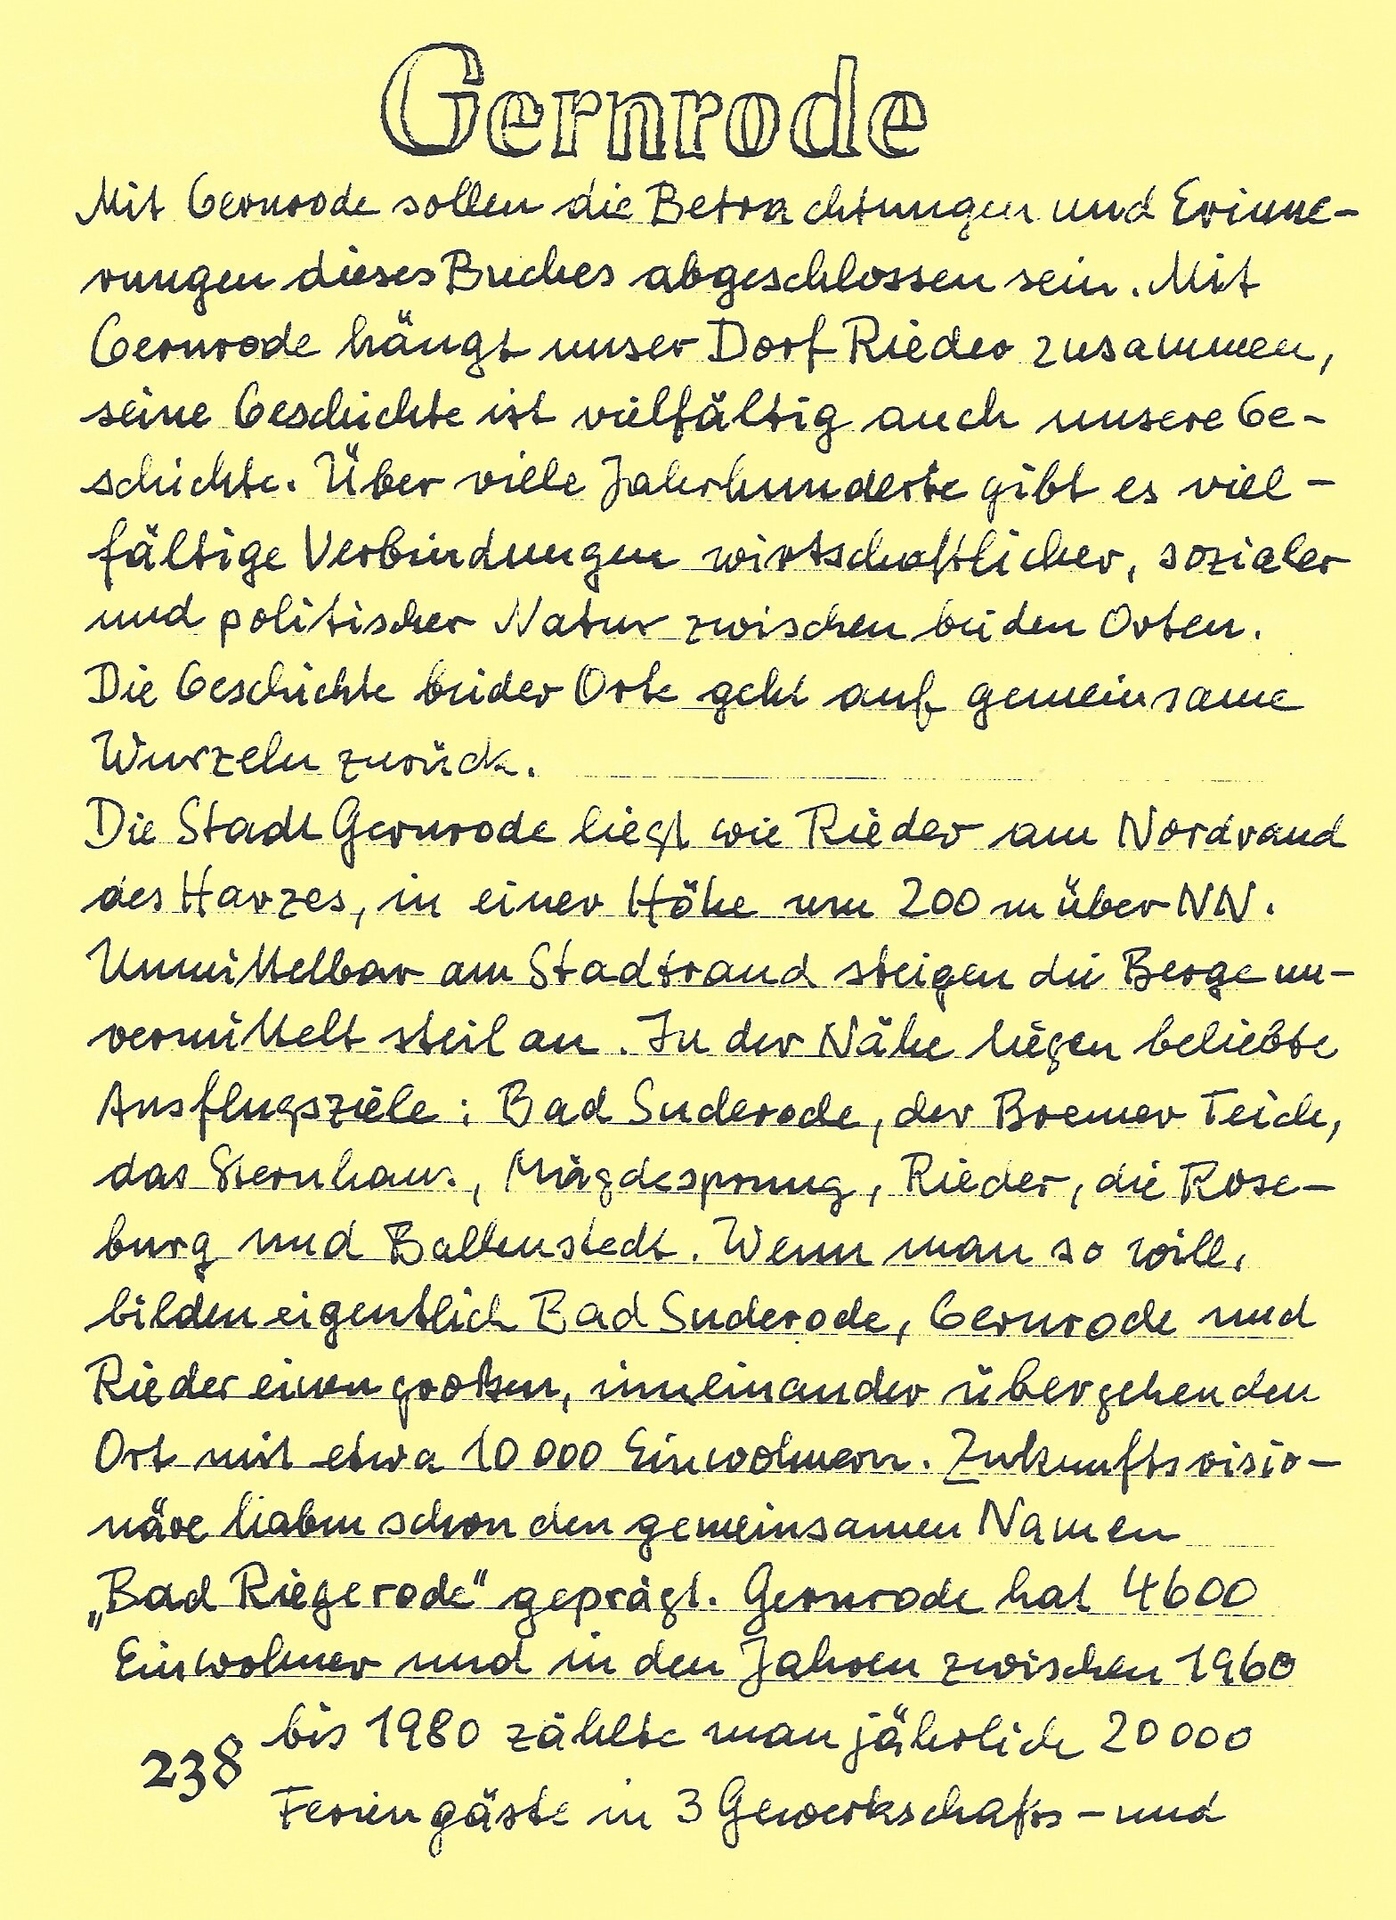 Gernrode
Mit Gernrode sollen die Betrachtungen und Erinne-
rungen dieses Buches abgeschlossen sein. Mit
Gernrode hängt unser Dorf Rieder zusammen,
seine Geschichte ist vielfältig auch unsere Ge-
schichte. Über viele Jahrhunderte gibt es viel-
fältige Verbindungen wirtschaftlicher, sozialer
und politischer Natur zwischen beiden Orten.
Die Geschichte beider Orte geht auf gemeinsame
Wurzeln zurück.
Die Stadt Gernrode liegt wie Rieder am Nordrand
des Harzes, in einer Höhe um 200 m über NN.
Unmittelbar am Stadtrand steigen die Berge un-
vermittelt steil an. In der Nähe liegen beliebte
Ausflugsziele: Bad Suderode, der Bremer Teich,
das Sternhaus, Mägdesprung, Rieder, die Rose-
burg und Ballenstedt. Wenn man so will,
bilden eigentlich Bad Suderode, Gernrode und
Rieder einen großen, ineinander übergehenden
Ort mit etwa 10 000 Einwohnern. Zukunftsvisio-
näre haben schon den gemeinsamen Namen
„Bad Riegerode“ geprägt. Gernrode hat 4600
Einwohner und in den Jahren zwischen 1960
bis 1980 zählte man jährlich 20 000
238
Feriengäste in 3 Gewerkschafts- und